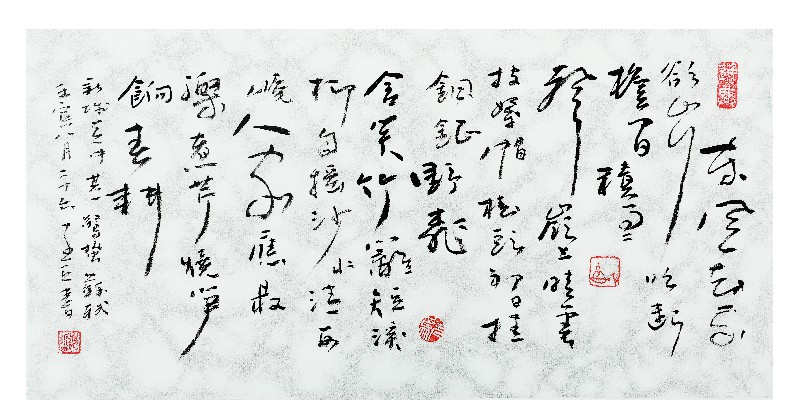 東風知我
欲山行吹斷
檐間積雨
聲嶺上晴雲
披絮帽樹頭初日挂
銅鉦野桃
含笑竹籬短溪
柳自搖沙水清西
崦人家應最
樂煮芹燒筍
餉春耕
新城道中其一蘇軾
壬寅八月二十六書